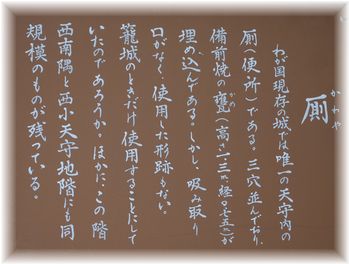 厠
かわや
わが国現存の城では唯一の天守内の
厠(便所)である。三穴並んでおり、
備前焼の甕(高さ一・三㍍、経〇・七五㍍)が
かめ
埋め込んである。しかし、吸み取り
口がなく、使用した形跡もない。
籠城のときだけ使用することにして
いたのであろうか。ほかに、この階
西南隅と西小天守地階にも同
規模のものが残っている。